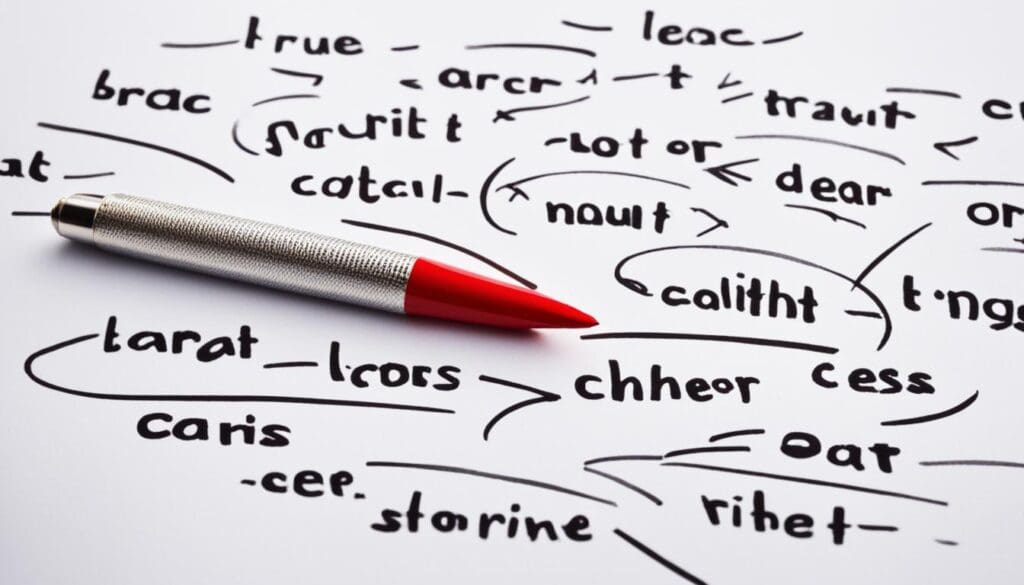 true
leac
brac
arcr
t
traut
c
at
Sourit t
-Lot or
dear
catcal-
nault
or
calitht
t·ngs
tarat
lcors
chheor
cess
Caris
oat
-cep.
storine
rihet